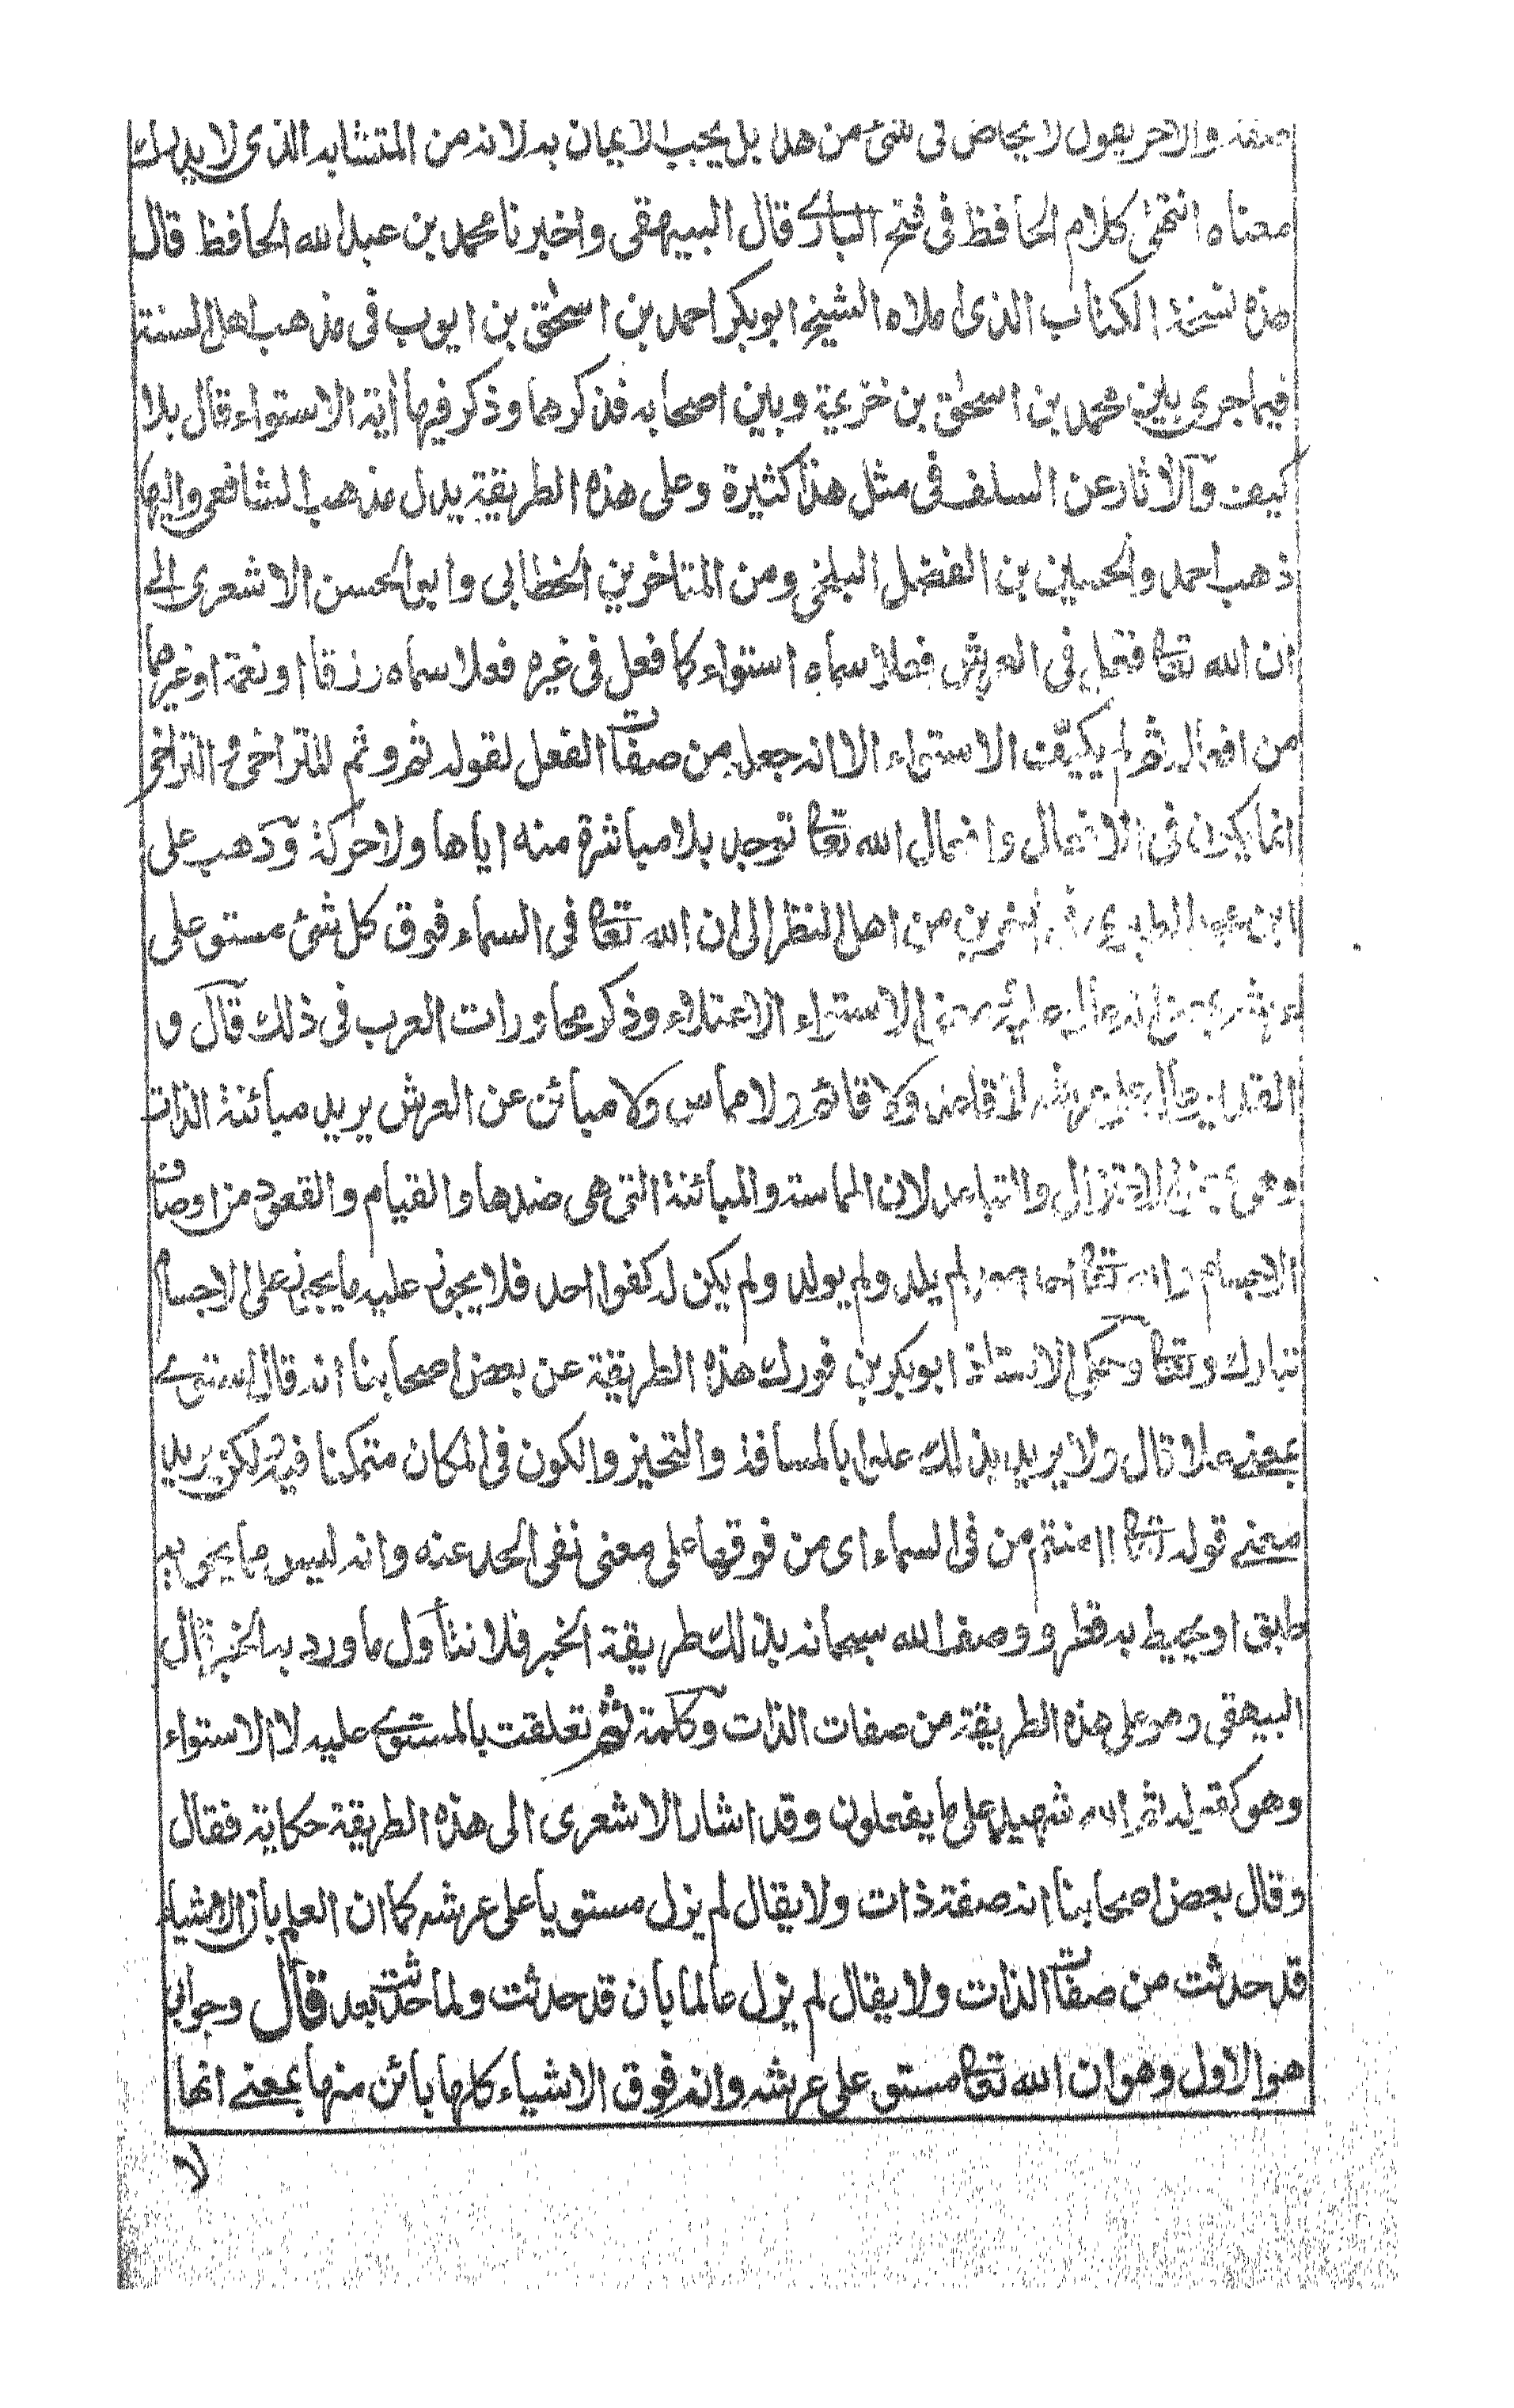 صفة والاخر يقول لا يخاض فى شئ من هذا بل يجب الايمان به لانه من المتشابه الذى لا يدرك
معناه انتهى كلام الحافظ فى فتح البارے قال البيهقى واخبرنا محمد بن عبد الله الحافظ قال
هذه نسخة الكتاب الذى املاه الشيخ ابو بكر احمد بن اسحٰق بن ايوب فى مذهب اهل السنة
فيما جرى بين محمد بن اسحٰق بن خزيمة وبين اصحابه فذكرها وذكر فيها اٰية الاستواء قال بلا
كيف والاٰثار عن السلف فى مثل هذا كثيرة وعلى هذه الطريقة يدل مذهب الشافعى واليها
ذهب احمد والحسين بن الفضل البلخى ومن المتاخرين الخطابى وابو الحسن الاشعرى الى
ان الله تعالى فعل فى العرش فعلا سماه استواء كما فعل فى غيره فعلا سماه رزقا او نعمة او غيرهما
من افعاله ثم لم يكيّف الاستواء الا انه جعله من صفات الفعل لقوله ثم وثم للتراخى والتراخى
انما يكون فى الافعال وافعال الله تعالى توجد بلا مباشرة منه اياها ولا حركة وذهب على
ابن الطبرى فى اٰخرين من اهل النظر الى ان الله تعالى فى السماء فوق كل شئ مستو على
عرشه بمعنى انه عال عليه ومعنى الاستواء الاعتلاء وذكر محاورات العرب فى ذلك قال و
القديم عال على عرشه لا قاعد ولا قائم ولا مماس ولا مبائن عن العرش يريد مبائنة الذات
وهى بمعنى الاعتزال والتباعد لان المماسة والمبائنة التى هى ضدها والقيام والقعود من اوصاف
الاجسام والله تعالى احد صمد لم يلد ولم يولد ولم يكن له كفوا احد فلا يجوز عليه ما يجوز على الاجسام
تبارك وتعالى وحكى الاستاذ ابو بكر بن فورك هذه الطريقة عن بعض اصحابنا انه قال استوے
بمعنے علا قال ولا يريد بذلك علوا بالمسافة والتحيز والكون فى المكان متمكنا فيه لكن يريد
معنے قوله تعالى ءامنتم من فى السماء اى من فوقها على معنى نفى الحد عنه وانه ليس مما يحويه
طبق او يحيط به قطر ووصف الله سبحانه بذلك طريقة الخبر فلا نتأول ما ورد به الخبر قال
البيهقى وهو على هذه الطريقة من صفات الذات وكلمة ثم تعلقت بالمستوے عليه لا الاستواء
وهو كقوله ثم الله شهيد على ما يفعلون وقد اشار الاشعرى الى هذه الطريقة حكاية فقال
وقال بعض اصحابنا انه صفة ذات ولا يقال لم يزل مستويا على عرشه كما ان العلم بان الاشياء
قد حدثت من صفات الذات ولا يقال لم يزل عالما بان قد حدثت ولما حدثت بعد قال وجوابى
هو الاول وهو ان الله تعالى مستو على عرشه وانه فوق الاشياء كلها بائن منها بمعنے انها
لا